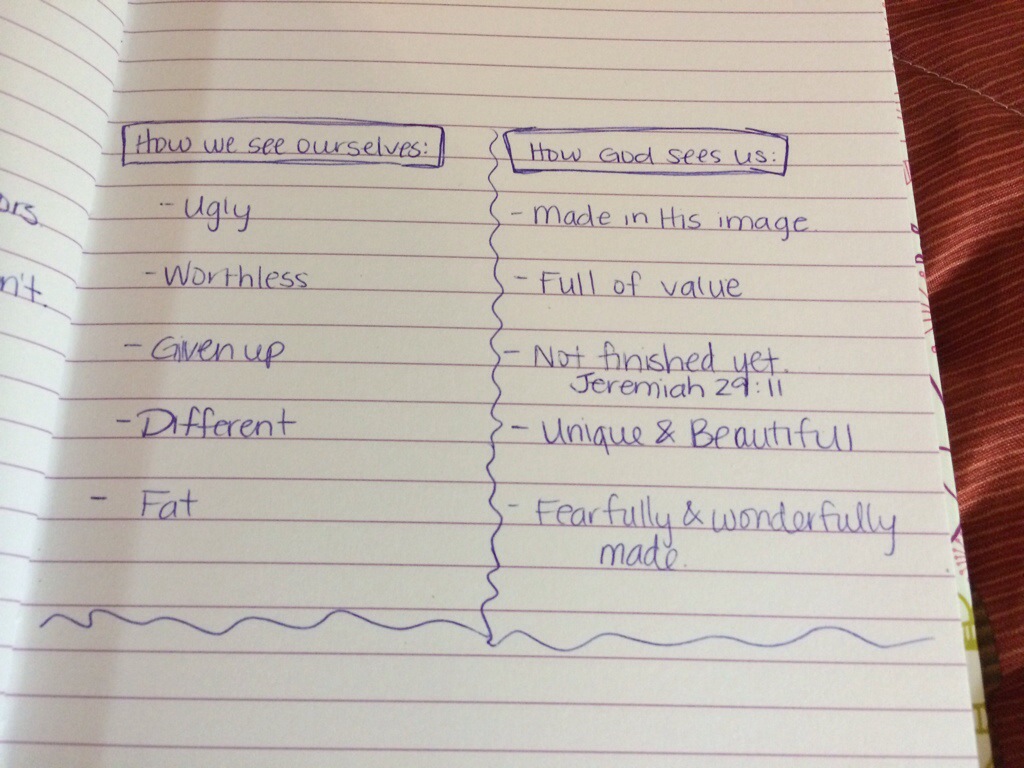 How we see ourselves:
- Ugly
- Worthless
- Given up
- Different
- Fat
How God sees us:
- made in His image
- Full of value
- Not finished yet.
Jeremiah 29:11
- Unique & Beautiful
- Fearfully & wonderfully
made.